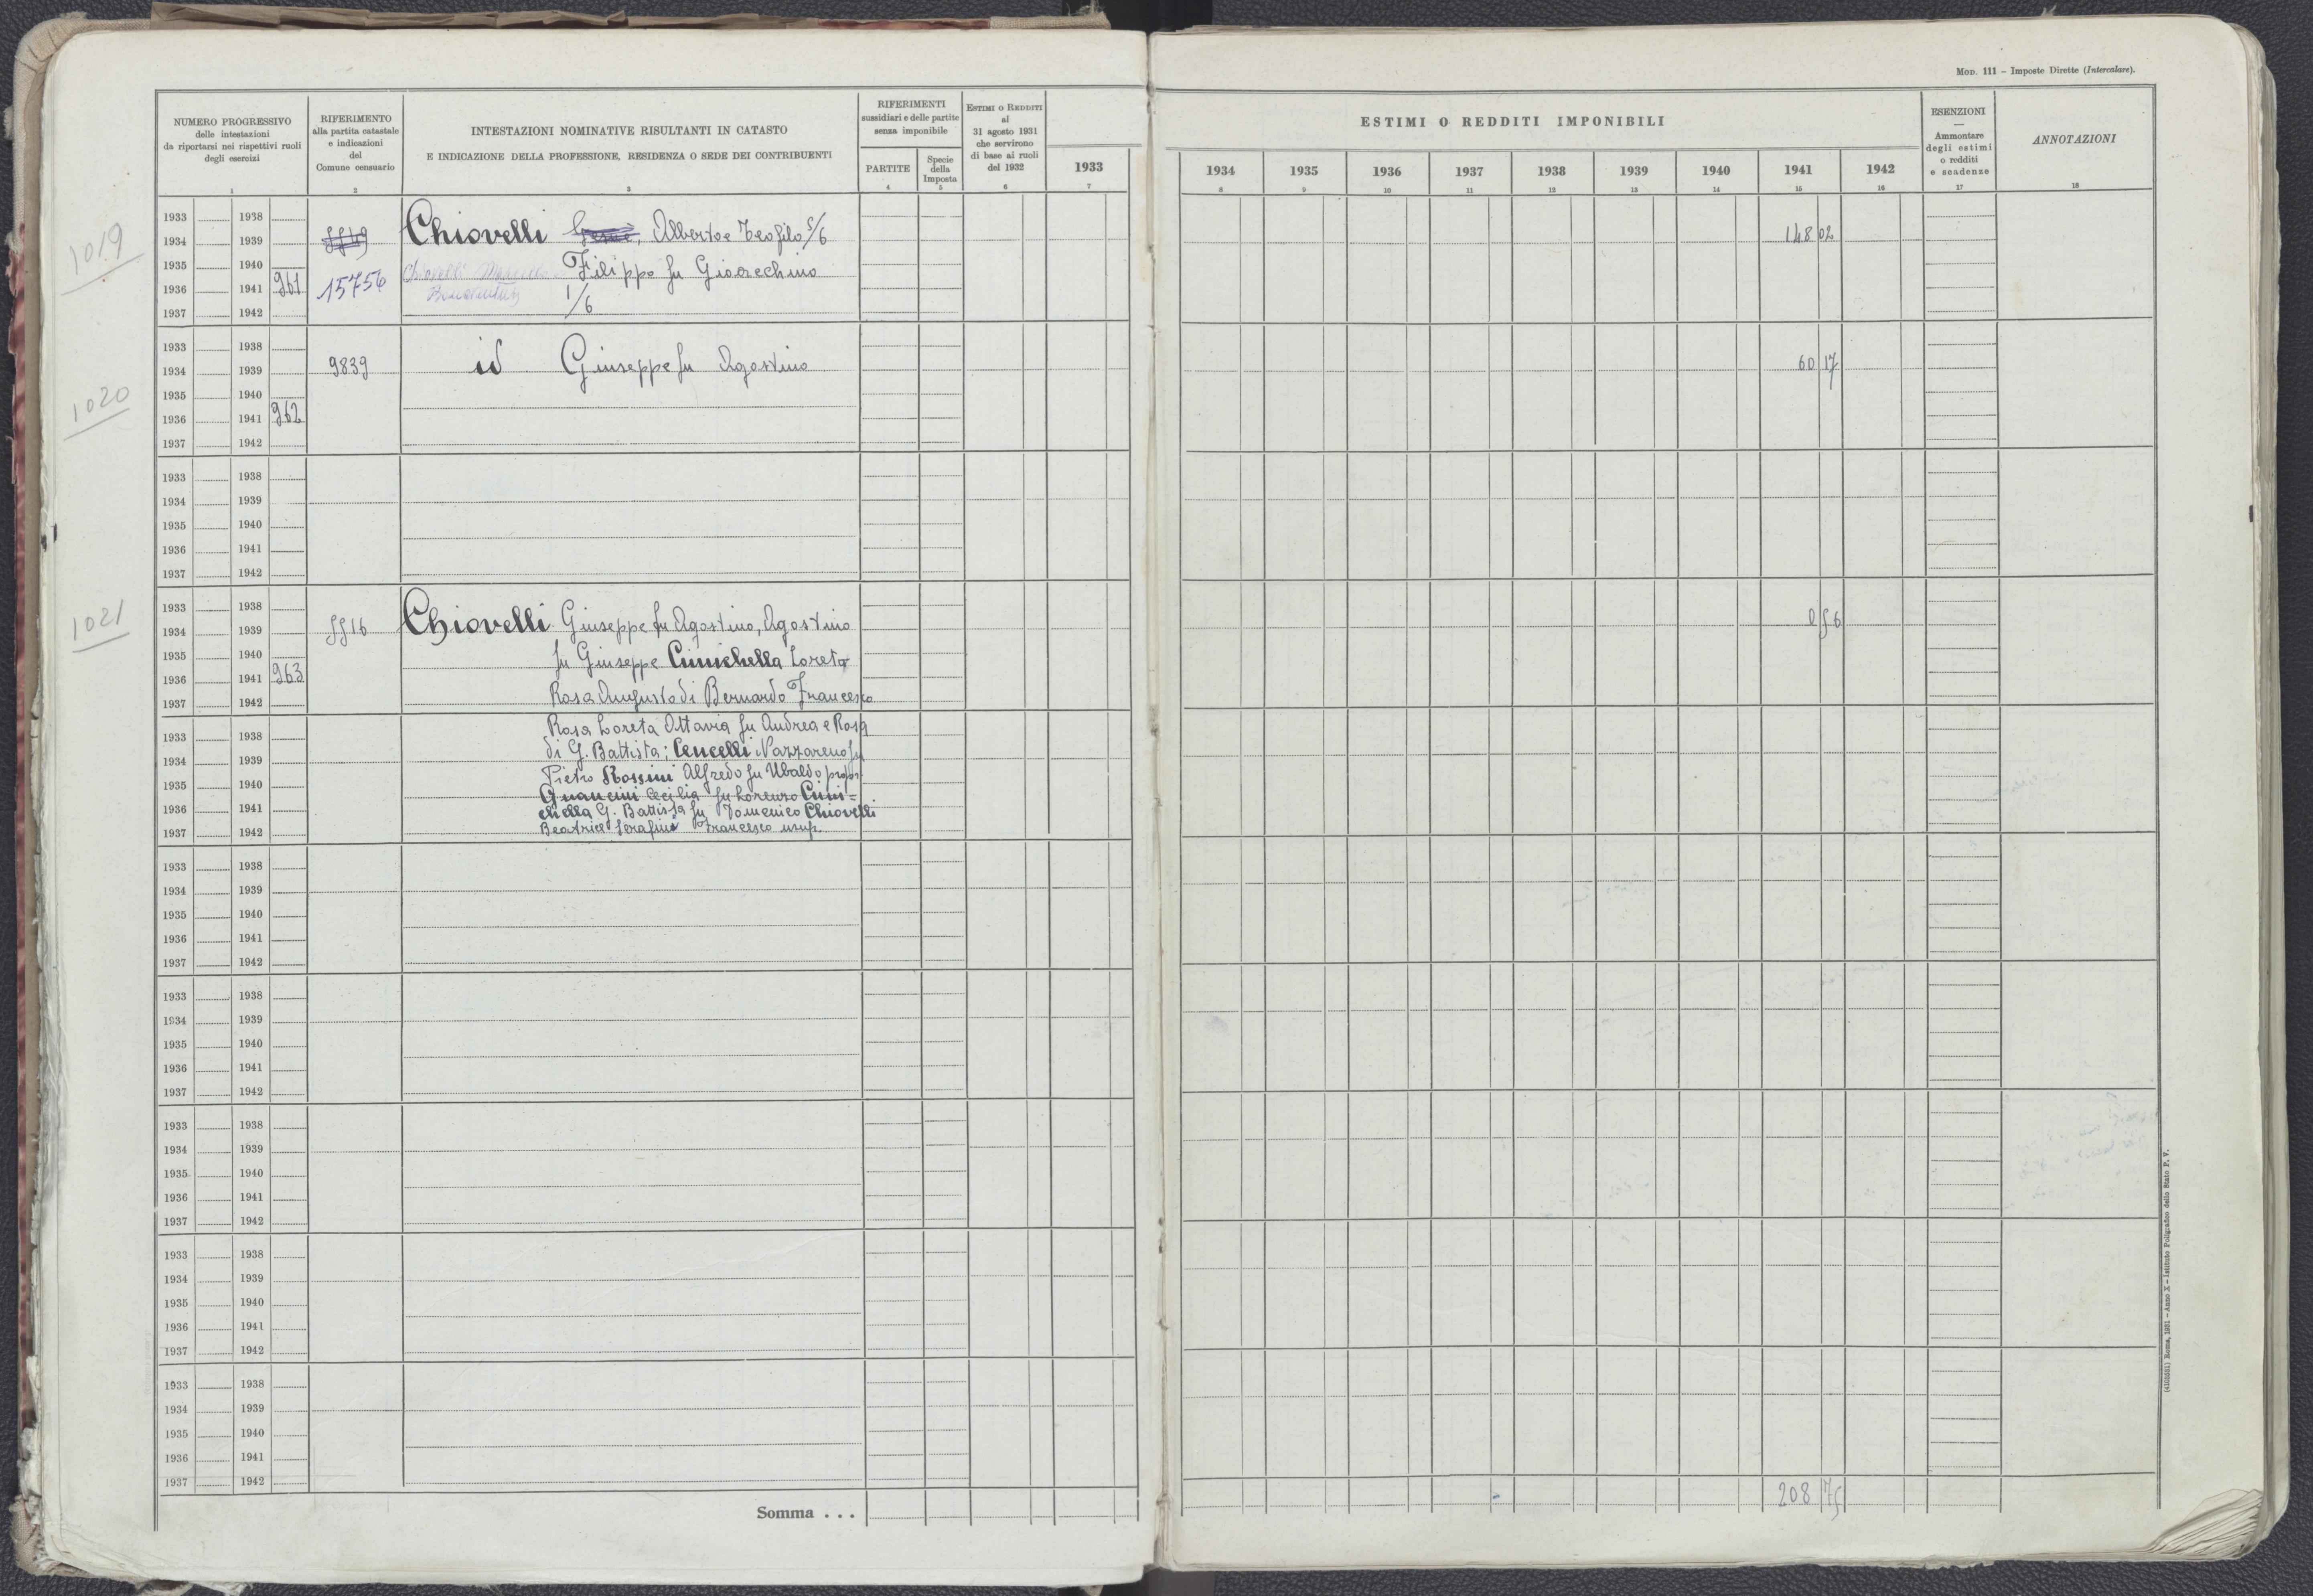 MOD. 111 – Imposte Dirette (Intercalare).
NUMERO PROGRESSIVO
delle intestazioni
da riportarsi nei rispettivi ruoli
degli esercizi
1
RIFERIMENTO
alla partita catastale
e indicazioni
del
Comune censuario
2
INTESTAZIONI NOMINATIVE RISULTANTI IN CATASTO
E INDICAZIONE DELLA PROFESSIONE, RESIDENZA O SEDE DEI CONTRIBUENTI
3
RIFERIMENTI
sussidiari e delle partite
senza imponibile
PARTITE
4
Specie
della
Imposta
5
ESTIMI O REDDITI
al
31 agosto 1931
che servirono
di base ai ruoli
del 1932
6
1933
7
ESTIMI O REDDITI IMPONIBILI
1934 1935 1936 1937 1938 1939 1940 1941 1942
8 9 10 11 12 13 14 15 16
ESENZIONI
—
Ammontare
degli estimi
o redditi
e scadenze
17
ANNOTAZIONI
18
1019
1933 1938
1934 1939 Chiovelli Alberto e Teofilo 5/6 148 02
1935 1940 Chiovelli Filippo fu Gioacchino
1936 1941 961 15756 1/6
1937 1942
1020
1933 1938
1934 1939 9839 id Giuseppe fu Agostino 60 17
1935 1940
1936 1941 962
1937 1942
1933 1938
1934 1939
1935 1940
1936 1941
1937 1942
1021
1933 1938
1934 1939 5516 Chiovelli Giuseppe fu Agostino, Agostino 0 56
1935 1940 fu Giuseppe Cunichella Loreta
1936 1941 963
1937 1942 Rosa Augusto di Bernardo Francesco
Rosa Loreta Ottavia fu Andrea e Rosa
1933 1938
di G. Battista; Cencelli Nazzareno fu
1934 1939
Pietro Rossini Alfredo fu Ubaldo propr
1935 1940
Cecilia fu Lorenzo Cuni=
1936 1941 chella G. Battista fu Domenico Chiovelli
1937 1942 Beatrice Serafini Francesco usuf.
1933 1938
1934 1939
1935 1940
1936 1941
1937 1942
1933 1938
1934 1939
1935 1940
1936 1941
1937 1942
1933 1938
1934 1939
1935 1940
1936 1941
1937 1942
1933 1938
1934 1939
1935 1940
1936 1941
1937 1942
1933 1938
1934 1939
1935 1940
1936 1941
1937 1942
Somma . . . 208 75
(4103251) Roma, 1931 – Anno X – Istituto Poligrafico dello Stato P. V.